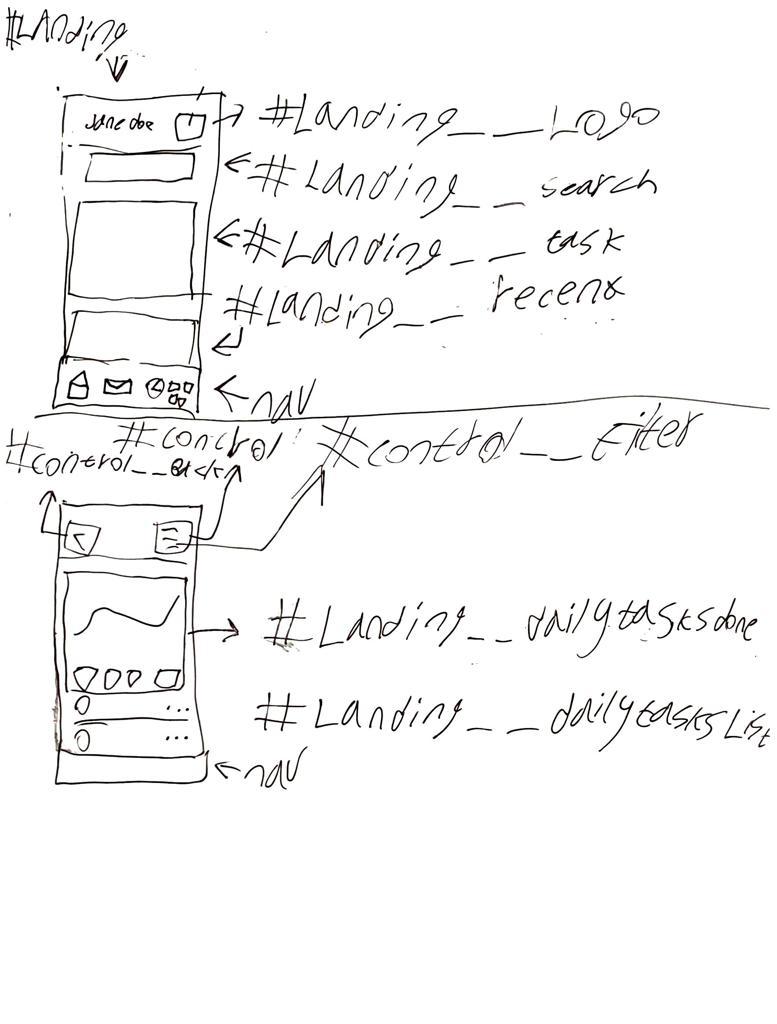 #LAnding
Jane doe
#Landing__Logo
#Landing__search
#Landing__task
#Landing__recent
nav
#control
#control__filter
#control__
#Landing__dailytasksdone
#Landing__dailytasksList
nav